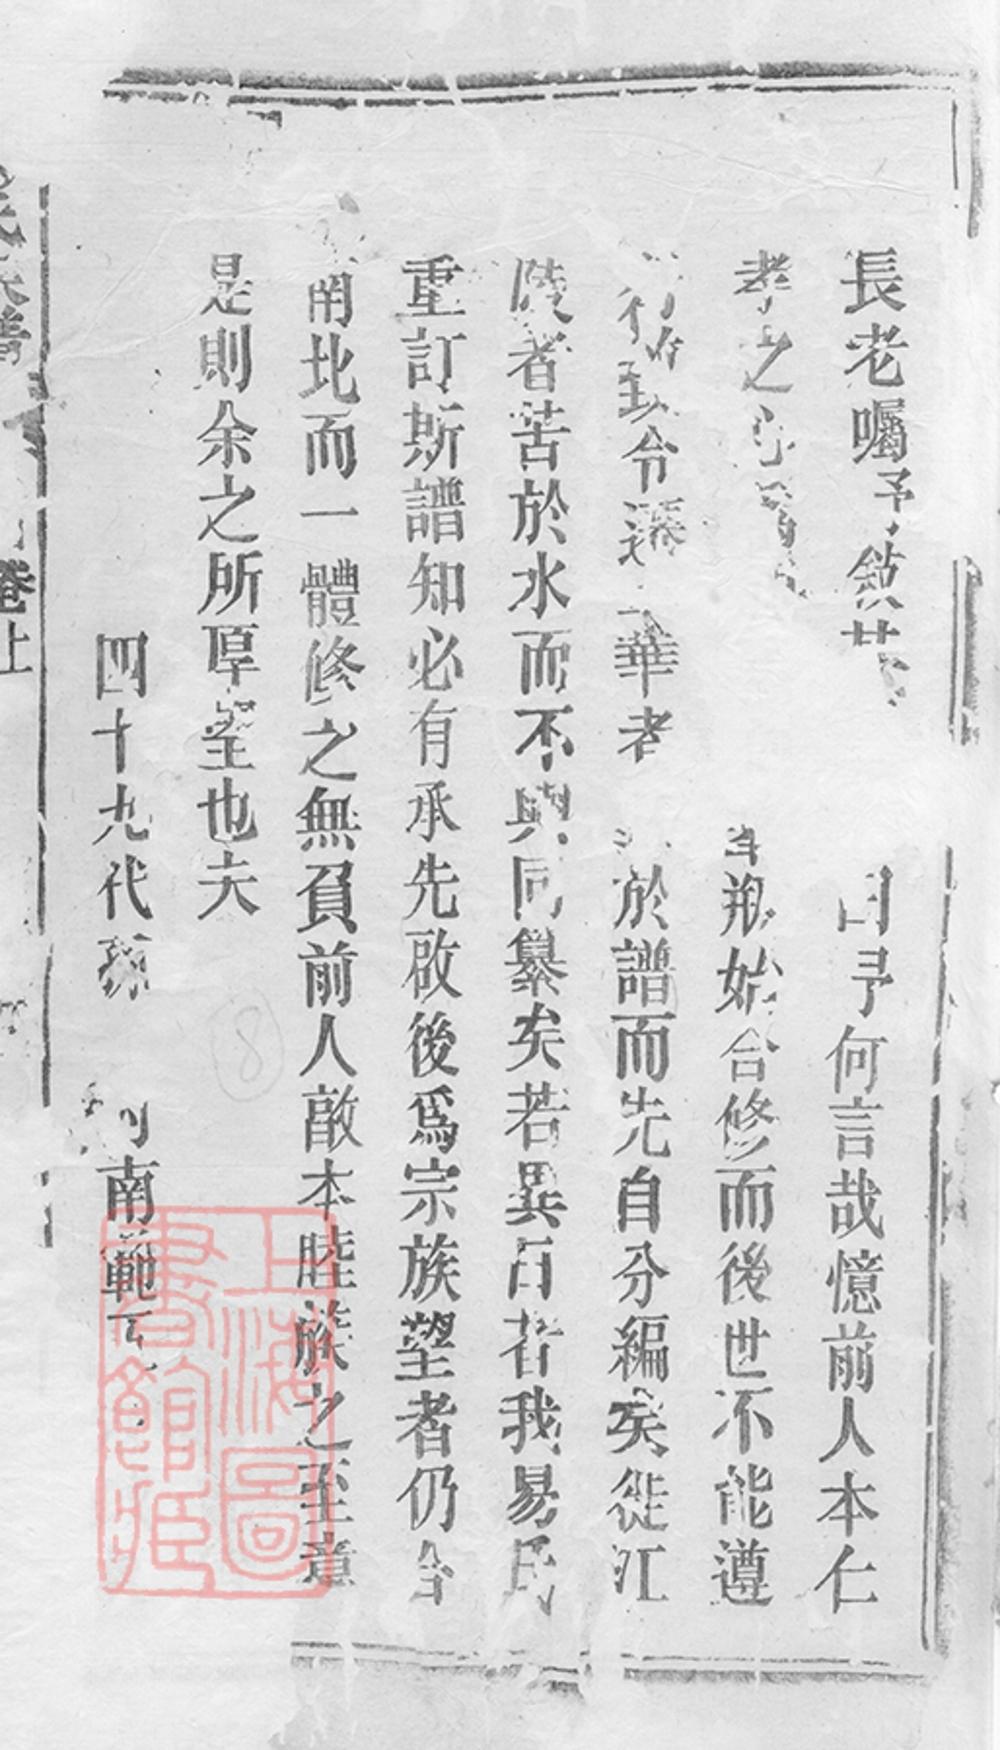 長老囑予 曰予何言哉憶前人本仁
孝之 始合修而後世不能遵
行 致令 華者 於譜而先自分編矣徙江
陵者苦於水而不與同纂矣若異日者我易氏
重訂斯譜知必有承先啟後爲宗族望者仍合
南北而一體修之無負前人敵本睦族之至意
是則余之所厚望也夫
四十九代孫 南範
氏族譜
卷上
上海圖書館藏
8